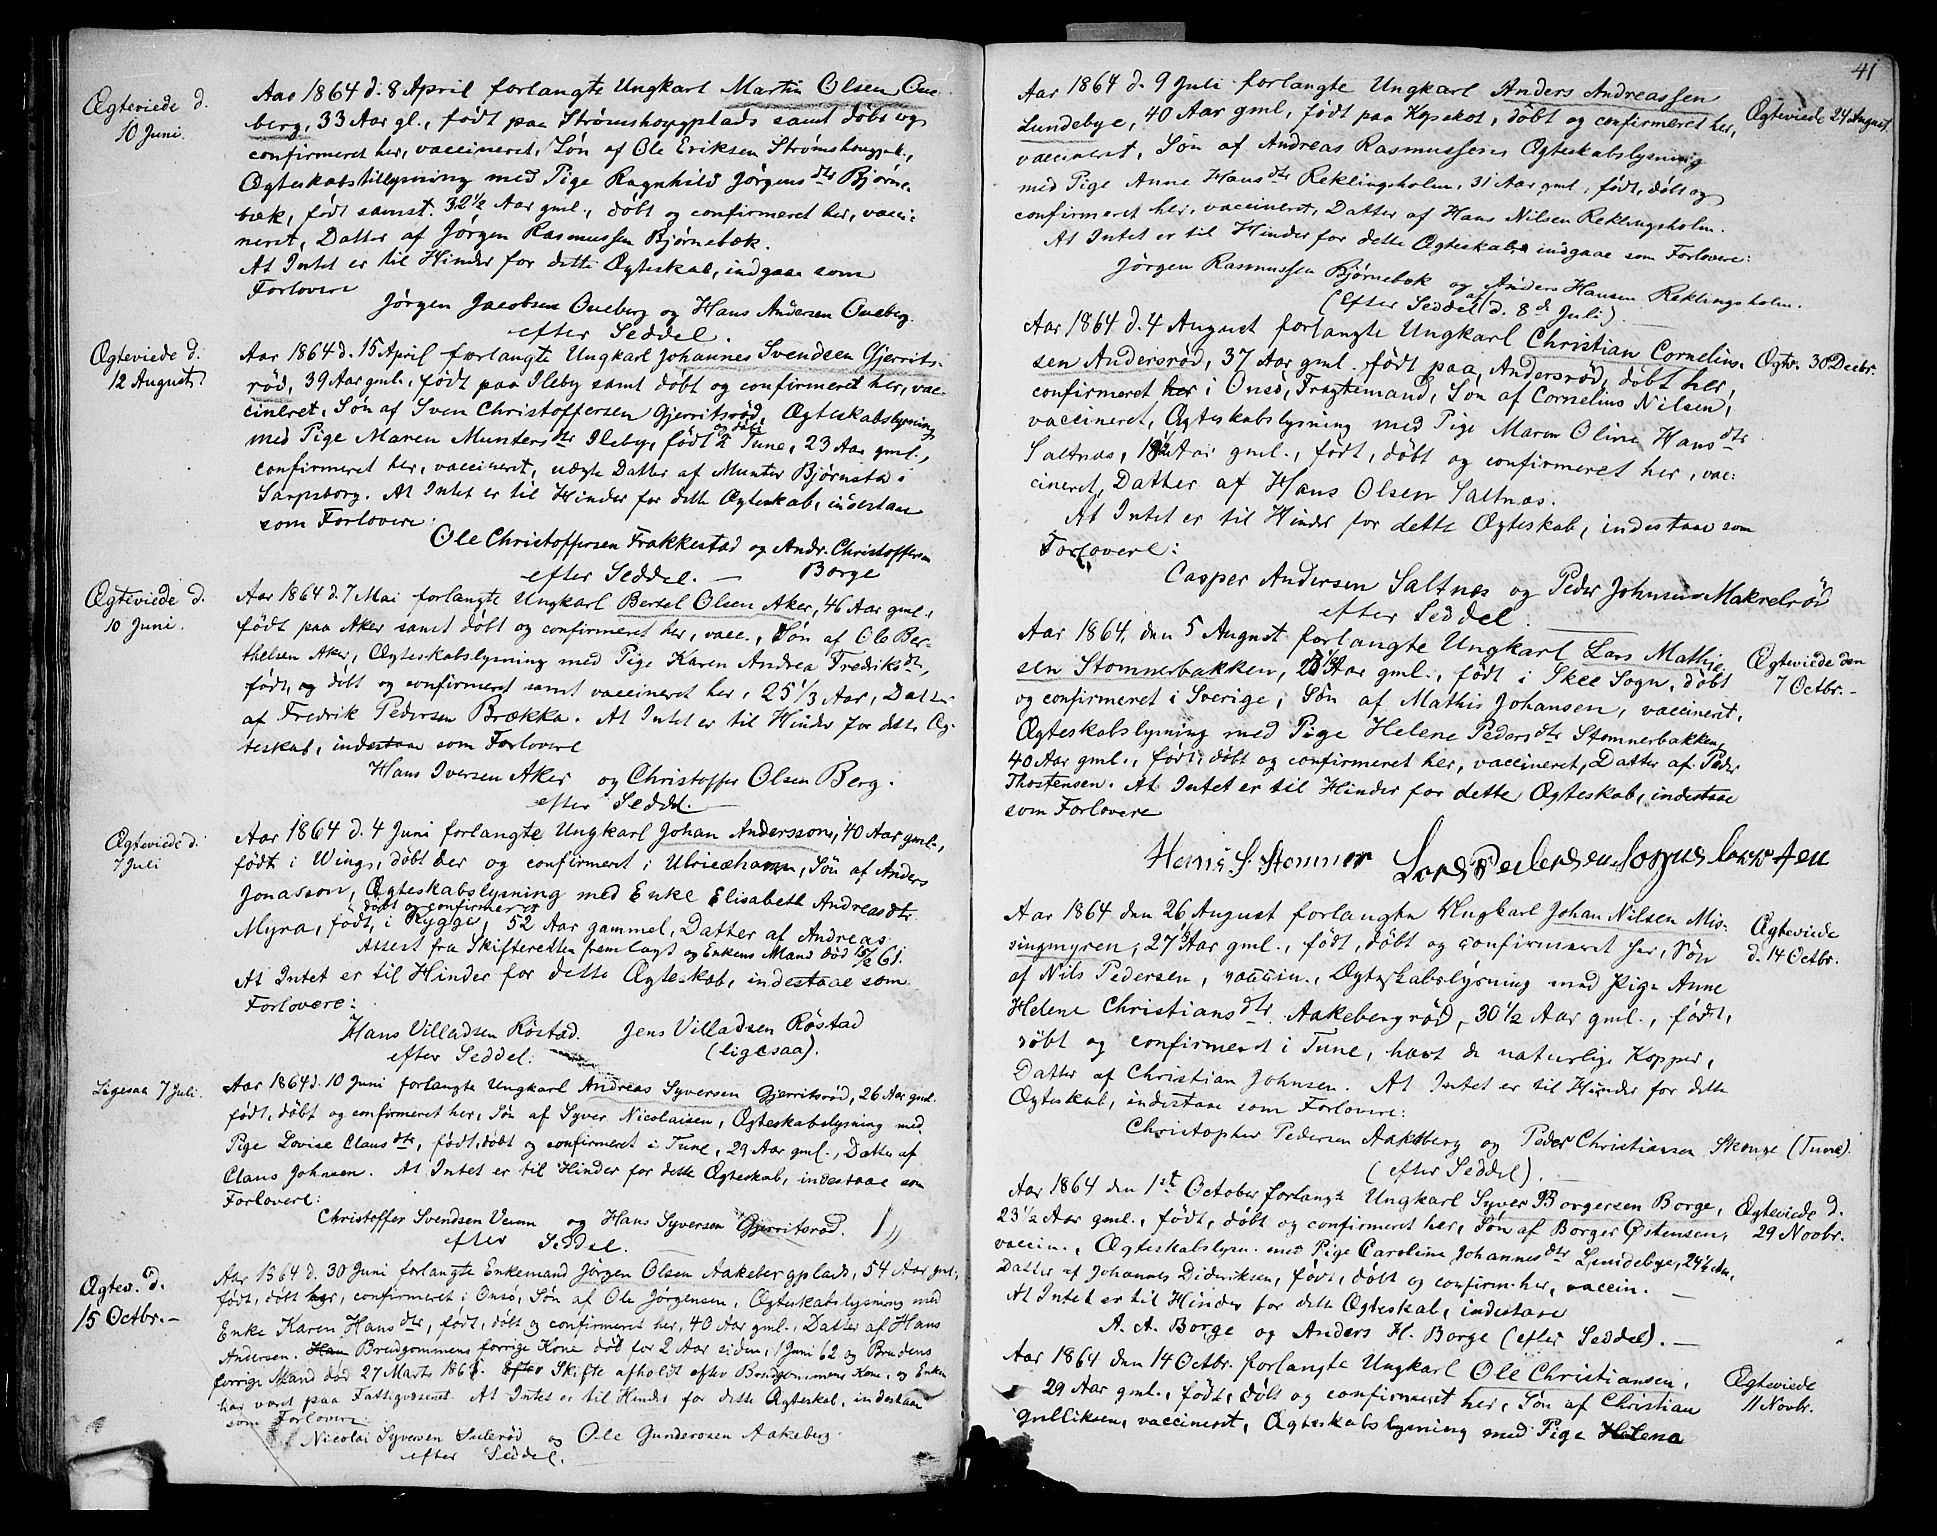 Ægteviede d.
10 Juni.
Aar 1864 d. 8 April forlangte Ungkarl Martin Olsen Oue-
berg, 33 Aar gl., født paa Strømshougplads samt døbt og
confirmeret her, vaccineret, Søn af Ole Eriksen Strømshougpl.,
Ægteskabstillysning med Pige Ragnhild Jørgensdtr Bjørne-
bæk, født samst. 32 1/2 Aar gml., døbt og confirmeret her, vacci-
neret, Datter af Jørgen Rasmussen Bjørnebæk.
At Intet er til Hinder for dette Ægteskab, indgaae som
Forlovere
Jørgen Jacobsen Oueberg og Hans Andersen Oueberg.
efter Seddel.
Ægteviede d.
12 August.
Aar 1864 d. 15 April forlangte Ungkarl Johannes Svendsen Gjerrits-
rød, 39 Aar gml., født paa Ileby samt døbt og confirmeret her, vac-
cineret, Søn af Sven Christoffersen Gjerritsrød, Ægteskabslysning
med Pige Maren Muntersdtr Ileby, født og døbt i Tune, 23 Aar gml.,
confirmeret her, vaccineret, uægte Datter af Munter Bjørnsta i
Sarpsborg. At Intet er til Hinder for dette Ægteskab, indestaae
som Forlovere:
Ole Christoffersen Frakkestad og Andr. Christoffersen
efter Seddel. — Borge
Ægteviede d.
10 Juni.
Aar 1864 d. 7 Mai forlangte Ungkarl Bertel Olsen Aker, 46 Aar gml.,
født paa Aker samt døbt og confirmeret her, vacc., Søn af Ole Ber-
thelsen Aker, Ægteskabslysning med Pige Karen Andrea Fredriksdtr,
født, og døbt og confirmeret samt vaccineret her, 25 1/3 Aar, Datter
af Fredrik Pedersen Brækka. At Intet er til Hinder for dette Æg-
teskab, indestaae som Forlovere
Hans Iversen Aker og Christoffer Olsen Berg.
efter Seddel. —
Ægteviede d.
7 Juli
Aar 1864 d. 4 Juni forlangte Ungkarl Johan Anderssons, 40 Aar gml.,
født i Wings, døbt der og confirmeret i Ulricæhamn, Søn af Anders
Jonasson, Ægteskabslysning med Enke Elisabeth Andreasdtr
Myra, født, døbt og confirmeret i Rygge, 52 Aar gammel, Datter af Andreas
Attest fra Skifteretten fremlagt og Enkens Mand død 15/2 61.
At Intet er til Hinder for dette Ægteskab, indestaae som
Forlovere:
Hans Villadsen Röstad. Jens Villadsen Röstad
efter Seddel. (ligesaa).
Ligesaa 7 Juli.
Aar 1864 d. 10 Juni forlangte Ungkarl Andreas Syversen Gjerritsrød, 26 Aar gml.
født, døbt og confirmeret her, Søn af Syver Nicolaisen, Ægteskabslysning med
Pige Lovise Clausdtr, født, døbt og confirmeret i Tune, 29 Aar gml., Datter af
Claus Johnsen. At Intet er til Hinder for dette Ægteskab, indestaae som
Forlovere:
Christoffer Svendsen Veum og Hans Syversen Gjerritsrød.
efter Seddel.
Ægtev. d.
15 Octbr. —
Aar 1864 d. 30 Juni forlangte Enkemand Jørgen Olsen Aakebergplads, 54 Aar gml.,
født, døbt her, confirmeret i Onsø, Søn af Ole Jørgensen, Ægteskabslysning med
Enke Karen Hansdtr, født, døbt og confirmeret her, 40 Aar gml., Datter af Hans
Andersen. Han Brudgommens forrige Kone død for 2 Aar siden, 1 Juni 62 og Brudens
forrige Mand død 27 Marts 186. Efter Skifte afholdt efter Brudgommens Kone, og Enken
har været paa Fattigvæsenet. At Intet er til Hinder for dette Ægteskab, indestaae
som Forlovere
Nicolai Syversen Sulerød og Ole Gundersen Aakeberg.
efter Seddel.
41
Aar 1864 d. 9 Juli forlangte Ungkarl Anders Andreassen
Lundebye, 40 Aar gml, født paa Kopskot, døbt og confirmeret her,
vaccineret, Søn af Andreas Rasmussen Ægteskabslysning
med Pige Anne Hansdtr Reklingsholm, 31 Aar gml, født, døbt og
confirmeret her, vaccineret, Datter af Hans Nilsen Reklingsholm.
At Intet er til Hinder for dette Ægteskab, indgaae som Forlovere:
Jörgen Rasmussen Björnebæk og Anders Hansen Reklingsholm.
(Efter Seddel af d. 8de Juli)
Ægteviede 24 August.
Aar 1864 d. 4 August forlangte Ungkarl Christian Cornelius-
sen Andersrød, 37 Aar gml. født paa Andersrød, døbt her,
confirmeret her i Onsø, Fragtemand, Søn af Cornelius Nilsen,
vaccineret, Ægteskabslysning med Pige Maren Oline Hansdtr
Saltnæs, 18 1/2 Aar gml., født, døbt og confirmeret her, vac-
cineret, Datter af Hans Olsen Saltnæs.
At Intet er til Hinder for dette Ægteskab, indestaae som
Forlovere:
Casper Andersen Saltnæs og Peder Johnsen Makrelrød
efter Seddel.
Ægtv. 30 Decbr.
Aar 1864. den 5 August forlangte Ungkarl Lars Mathi-
sen Stomnerbakken, Aar gml., født i Skee Sogn, döbt
og confirmeret i Sverige, Søn af Mathis Johansen, vaccineret,
Ægteskabslysning med Pige Helene Pedersdtr Stomnerbakken
40 Aar gml., født, døbt og confirmeret her, vaccineret, Datter af Peder
Thorstensen. At Intet er til Hinder for dette Ægteskab, indestaae
som Forlovere
Hans S Stomner Lars Pedersen
Ægteviede den
7 Octbr. —
Aar 1864 den 26 August forlangte Ungkarl Johan Nilsen Mis-
singmyren, 27 Aar gml., født, døbt og confirmeret her, Søn
af Nils Pedersen, vaccin., Ægteskabslysning med Pige Anne
Helene Christiansdtr Aakebergrød, 30 1/2 Aar gml., født,
døbt og confirmeret i Tune, havt de naturlige Kopper,
Datter af Christian Johnsen. At Intet er til Hinder for dette
Ægteskab, indestaae som Forlovere:
Christopher Pedersen Aakeberg og Peder Christiansen Skouge (Tune).
(efter Seddel).
Ægteviede
d. 14 Octbr.
Aar 1864 den 1st October forlangte Ungkarl Syver Borgersen Borge,
23 1/2 Aar gml., født, døbt og confirmeret her, Søn af Borger Østensen,
vaccin., Ægteskabslysn. med Pige Caroline Johannesdtr Lundebye, 24 1/2 Aar,
Datter af Johannes Dideriksen, født, døbt og confirm. her, vaccin. —
At Intet er til Hinder for dette Ægteskab, indestaae
A. A. Borge og Anders H. Borge (efter Seddel). —
Ægteviede d.
29 Novbr.
Aar 1864 den 14 Octbr. forlangte Ungkarl Ole Christiansen,
29 Aar gml., født, døbt og confirmeret her, Søn af Christian
Gulliksen, vaccineret, Ægteskabslysning med Pige Helena
Ægteviede
11 Novbr.